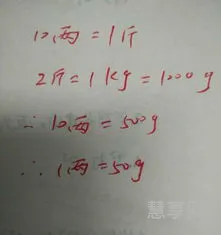 10两 = 1斤
2斤 = 1 kg = 1000 g
∴ 10两 = 500 g
∴ 1两 = 50 g